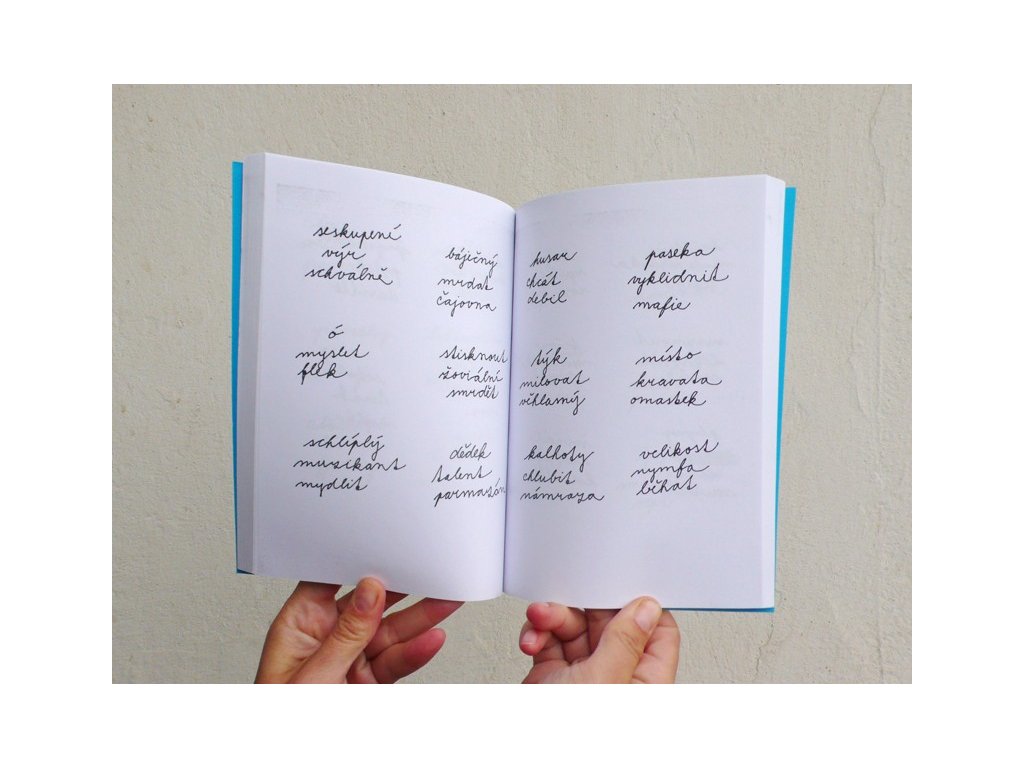 seskupené
výr
schválně
bájičný
mrdat
čajovna
ó
myslet
flek
stisknout
žoviální
smrdět
schlíplý
muzikant
mydlit
dědek
talent
parmazán
husar
chcát
debil
paseka
vyklidnit
mafie
týk
milovat
věhlasný
místo
kravata
omastek
kalhoty
chlubit
námraza
velikost
nymfa
běhat